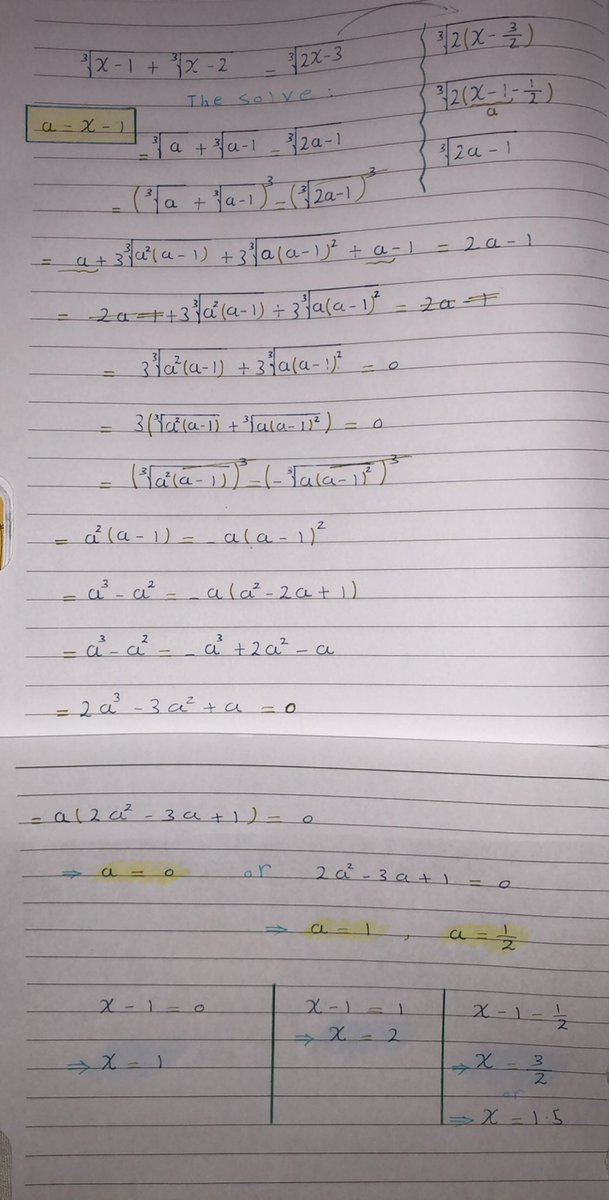 ∛(x-1) + ∛(x-2) = ∛(2x-3)
The solve :
a = x - 1
= ∛a + ∛(a-1) = ∛(2a-1)
∛(2(x - 3/2))
∛(2(x-1-1/2))
a
∛(2a-1)
= (∛a + ∛(a-1))³ = (∛(2a-1))³
= a + 3∛(a²(a-1)) + 3∛(a(a-1)²) + a-1 = 2a-1
= 2a-1 + 3∛(a²(a-1)) + 3∛(a(a-1)²) = 2a-1
= 3∛(a²(a-1)) + 3∛(a(a-1)²) = 0
= 3(∛(a²(a-1)) + ∛(a(a-1)²)) = 0
= (∛(a²(a-1)))³ = (-∛(a(a-1)²))³
= a²(a-1) = -a(a-1)²
= a³ - a² = -a(a² - 2a + 1)
= a³ - a² = -a³ + 2a² - a
= 2a³ - 3a² + a = 0
= a(2a² - 3a + 1) = 0
⇒ a = 0 or 2a² - 3a + 1 = 0
⇒ a = 1 , a = 1/2
x - 1 = 0
⇒ x = 1
x - 1 = 1
⇒ x = 2
x - 1 = 1/2
⇒ x = 3/2
or
⇒ x = 1.5